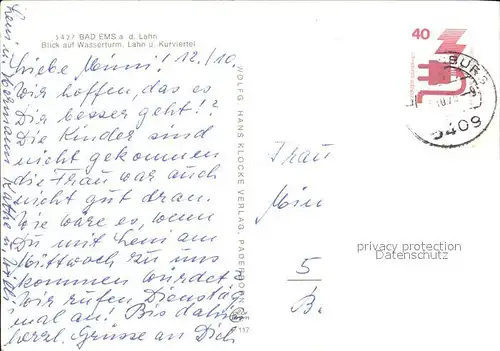 5427 BAD EMS a. d. Lahn
Blick auf Wasserturm, Lahn u. Kurviertel
Liebe Minni! 12./10.
Wir hoffen, das es
Dir besser geht!?
Die Kinder sind
nicht gekommen
die Frau war auch
nicht gut dran.
Wie wäre es, wenn
Du mit Leni am
Mittwoch zu uns
kommen würdet?
Wir rufen Dienstag
mal an! Bis dahin
herzl. Grüsse an Dich
Leni u. Hermann
WOLFG. HANS KLOCKE VERLAG, PADERBORN
117
40
5409
Frau
Min
5
B.
privacy protection
Datenschutz